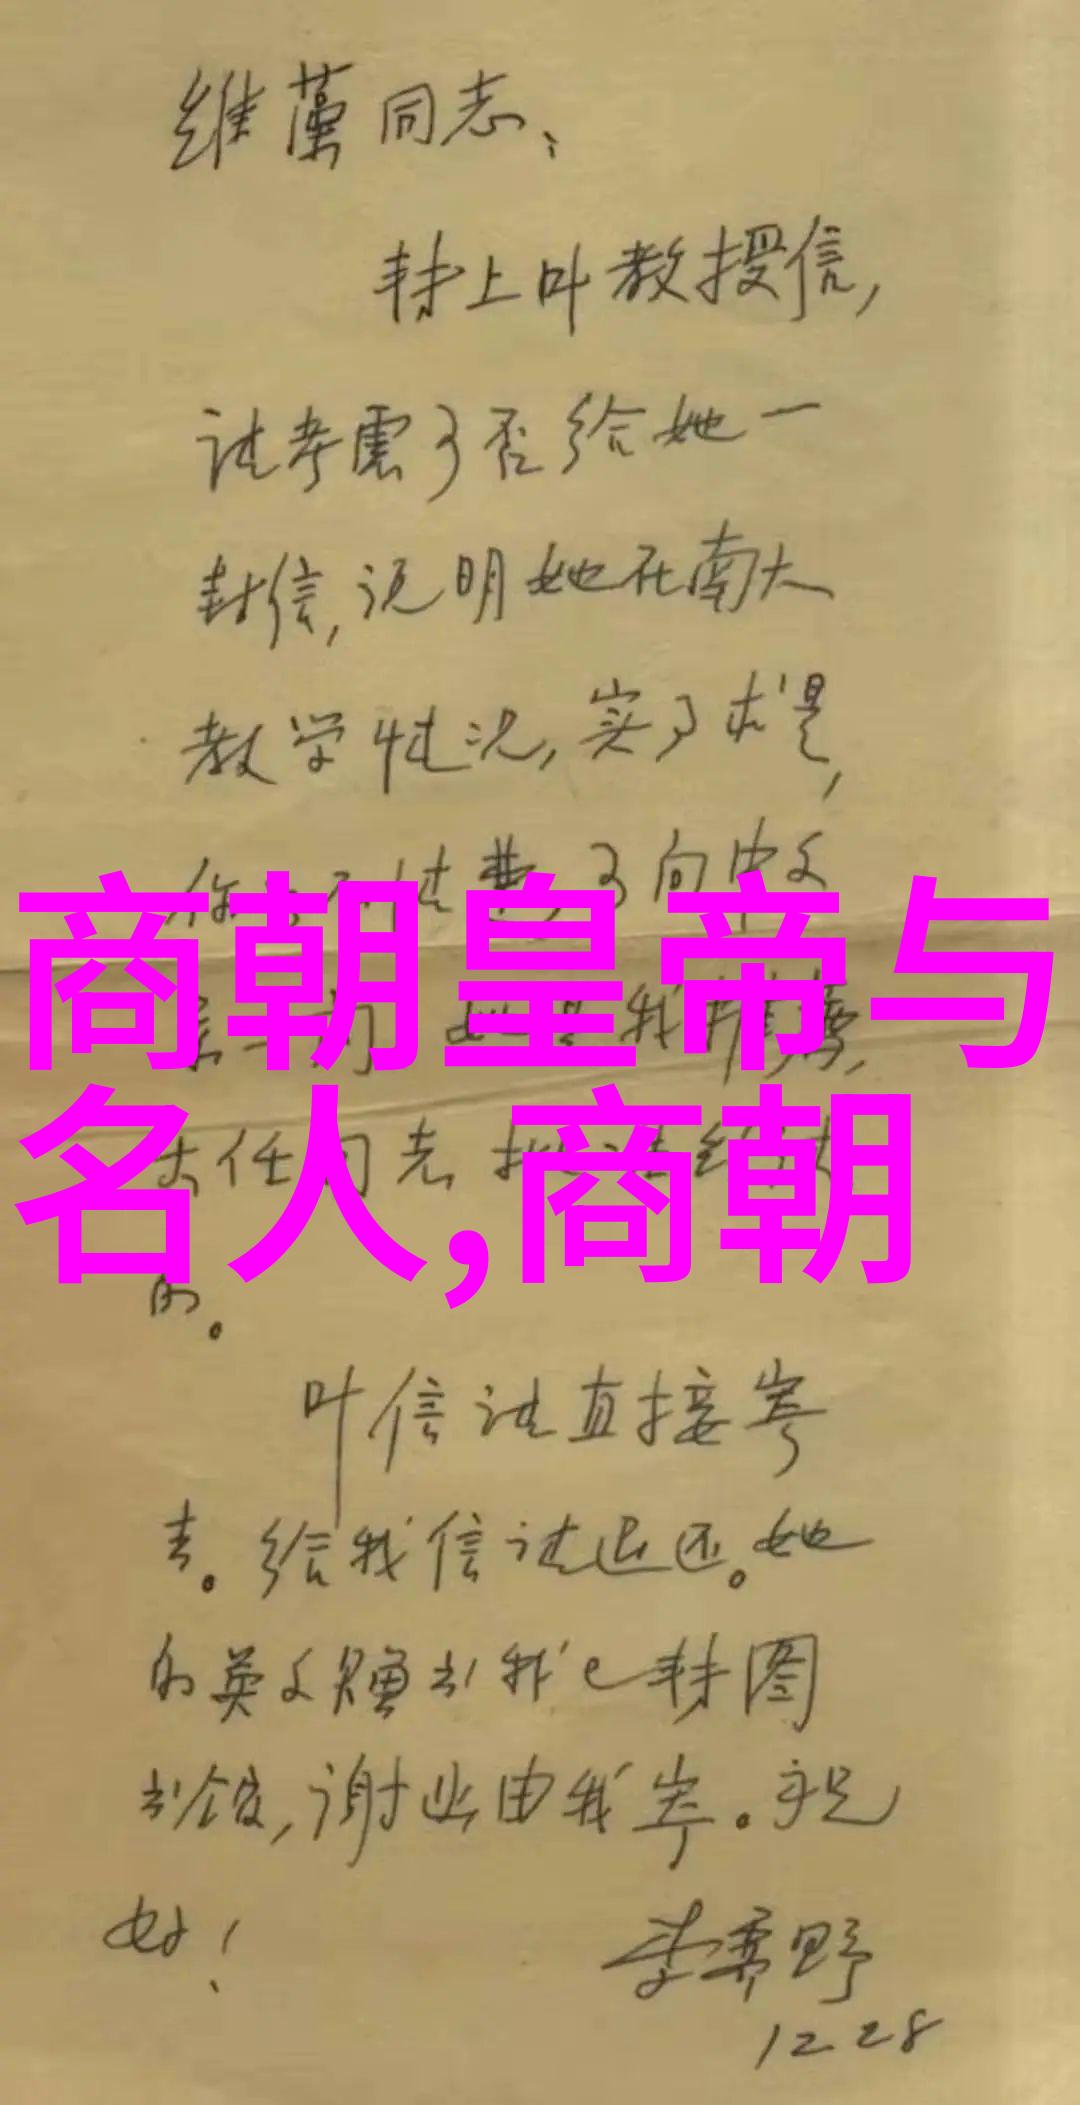 维藻同志:
转上叶教授信,
请考虑可否给她一
封信,说明她在南大
教学情况,实事求是,
你 费 可向中文
商朝皇帝与
名人,商朝
大任同志
的。
叶信请直接寄
去。给我信请退还。她
的英文赠书我已转图
书馆,谢也由我寄。祝
好!
李霁野
12 28